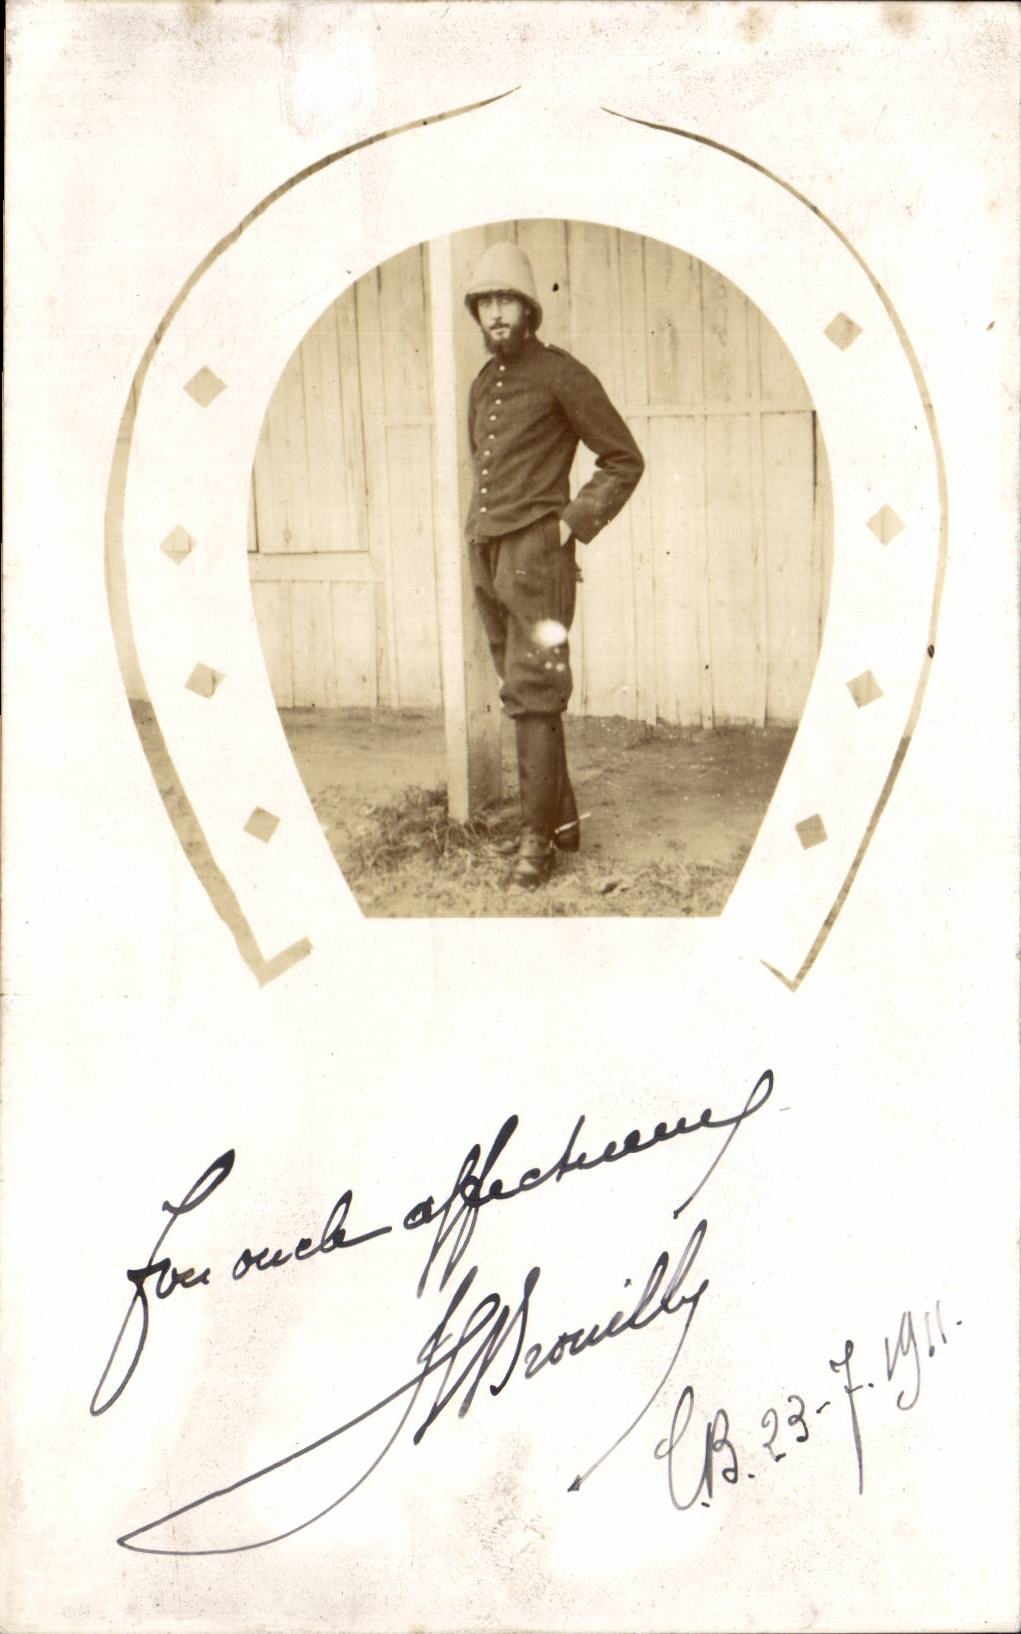 Ton oncle affectueux
Brouilly
C.B. 23-7.1911.